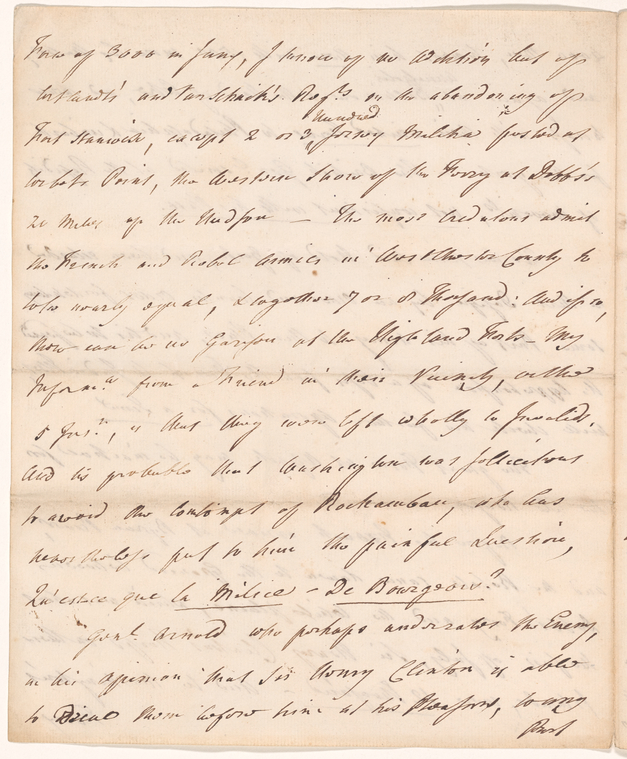 Force of 3000 in June, I know of no addition but of
Cortlandts and Van Schaick's Regts on the abandoning of
Fort Stanwix, except 2 or 3 hundred Jersey Militia posted at
Corbets Point, the Western Shore of the Ferry at Dobbs's
20 Miles up the Hudson — The most credulous admit
the French and Rebel Armies in West Chester County to
be nearly equal, & together 7 or 8 Thousand: And if so,
there can be no Garrison at the Highland Forts – My
Informn from a Friend in their Vicinity, on the
5 Inst, is that they were left wholly to Invalids,
and tis probable that Washington was sollicitous
to avoid the contempt of Rochambeau, who has
nevertheless put to him the painful Question,
Qu'estce que la Milice – De Bourgeois?
Genl. Arnold who perhaps underrates the Enemy,
in his opinion that Sir Henry Clinton is able
to Drive them before him at his Pleasure, to any
Part